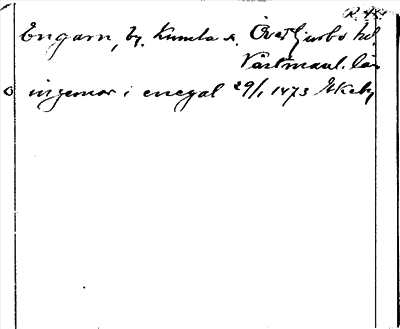 Engarn, by, Kumla s. Övertjurbo hd.
Västmanl. län
ingemar i enegal 29/1 1473 Ekeby